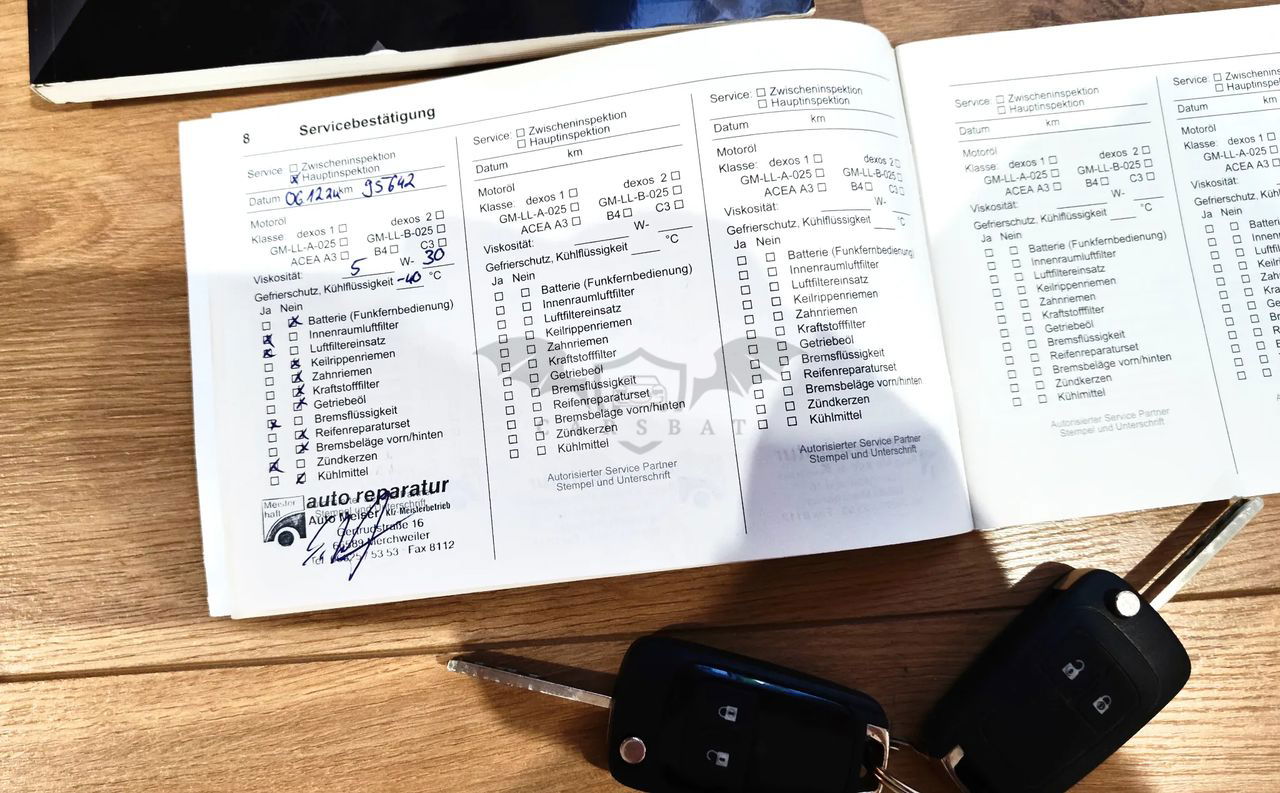 8 Servicebestätigung
Service ☐ Zwischeninspektion
☒ Hauptinspektion
Datum 06.12.24 km 95642
Motoröl
Klasse: dexos 1 ☐ dexos 2 ☐
GM-LL-A-025 ☐ GM-LL-B-025 ☐
ACEA A3 ☐ B4 ☐ C3 ☐
Viskosität: 5 W- 30
Gefrierschutz, Kühlflüssigkeit -40 °C
Ja Nein
☐ ☒ Batterie (Funkfernbedienung)
☒ ☐ Innenraumluftfilter
☒ ☐ Luftfiltereinsatz
☐ ☒ Keilrippenriemen
☐ ☒ Zahnriemen
☐ ☒ Kraftstofffilter
☐ ☒ Getriebeöl
☒ ☐ Bremsflüssigkeit
☐ ☒ Reifenreparaturset
☐ ☒ Bremsbeläge vorn/hinten
☒ ☐ Zündkerzen
☐ ☒ Kühlmittel
Meister
haft
auto reparatur
Stempel und Unterschrift
Auto Kfz-Meisterbetrieb
16
Merchweiler
53 53 - Fax 8112
Service: ☐ Zwischeninspektion
☐ Hauptinspektion
Datum km
Motoröl
Klasse: dexos 1 ☐ dexos 2 ☐
GM-LL-A-025 ☐ GM-LL-B-025 ☐
ACEA A3 ☐ B4 ☐ C3 ☐
Viskosität: W-
Gefrierschutz, Kühlflüssigkeit °C
Ja Nein
☐ ☐ Batterie (Funkfernbedienung)
☐ ☐ Innenraumluftfilter
☐ ☐ Luftfiltereinsatz
☐ ☐ Keilrippenriemen
☐ ☐ Zahnriemen
☐ ☐ Kraftstofffilter
☐ ☐ Getriebeöl
☐ ☐ Bremsflüssigkeit
☐ ☐ Reifenreparaturset
☐ ☐ Bremsbeläge vorn/hinten
☐ ☐ Zündkerzen
☐ ☐ Kühlmittel
Autorisierter Service Partner
Stempel und Unterschrift
Service: ☐ Zwischeninspektion
☐ Hauptinspektion
Datum km
Motoröl
Klasse: dexos 1 ☐ dexos 2 ☐
GM-LL-A-025 ☐ GM-LL-B-025 ☐
ACEA A3 ☐ B4 ☐ C3 ☐
Viskosität: W-
Gefrierschutz, Kühlflüssigkeit °C
Ja Nein
☐ ☐ Batterie (Funkfernbedienung)
☐ ☐ Innenraumluftfilter
☐ ☐ Luftfiltereinsatz
☐ ☐ Keilrippenriemen
☐ ☐ Zahnriemen
☐ ☐ Kraftstofffilter
☐ ☐ Getriebeöl
☐ ☐ Bremsflüssigkeit
☐ ☐ Reifenreparaturset
☐ ☐ Bremsbeläge vorn/hinten
☐ ☐ Zündkerzen
☐ ☐ Kühlmittel
Autorisierter Service Partner
Stempel und Unterschrift
Service: ☐ Zwischeninspektion
☐ Hauptinspektion
Datum km
Motoröl
Klasse: dexos 1 ☐ dexos 2 ☐
GM-LL-A-025 ☐ GM-LL-B-025 ☐
ACEA A3 ☐ B4 ☐ C3 ☐
Viskosität: W-
Gefrierschutz, Kühlflüssigkeit °C
Ja Nein
☐ ☐ Batterie (Funkfernbedienung)
☐ ☐ Innenraumluftfilter
☐ ☐ Luftfiltereinsatz
☐ ☐ Keilrippenriemen
☐ ☐ Zahnriemen
☐ ☐ Kraftstofffilter
☐ ☐ Getriebeöl
☐ ☐ Bremsflüssigkeit
☐ ☐ Reifenreparaturset
☐ ☐ Bremsbeläge vorn/hinten
☐ ☐ Zündkerzen
☐ ☐ Kühlmittel
Autorisierter Service Partner
Stempel und Unterschrift
Service: ☐ Zwischeninspektion
☐ Hauptinspektion
Datum km
Motoröl
Klasse: dexos 1 ☐
GM-LL-A-025 ☐
ACEA A3 ☐
Viskosität:
Gefrierschutz
Ja Nein
CARSBAT